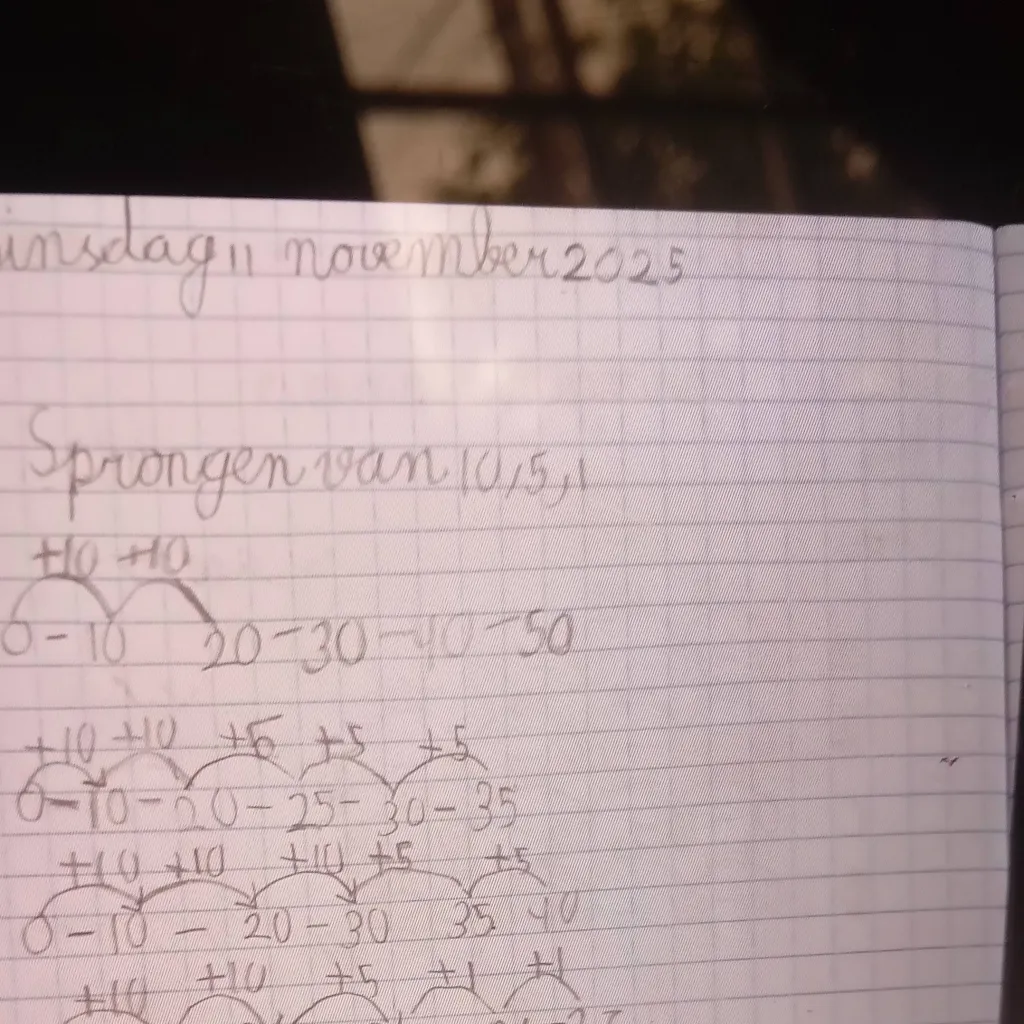 insdag 11 november 2025
Sprongen van 10, 5, 1
+10 +10
0 - 10 20 - 30 - 40 - 50
+10 +10 +5 +5 +5
0 - 10 - 20 - 25 - 30 - 35
+10 +10 +10 +5 +5
0 - 10 - 20 - 30 35 40
+10 +10 +5 +1 +1